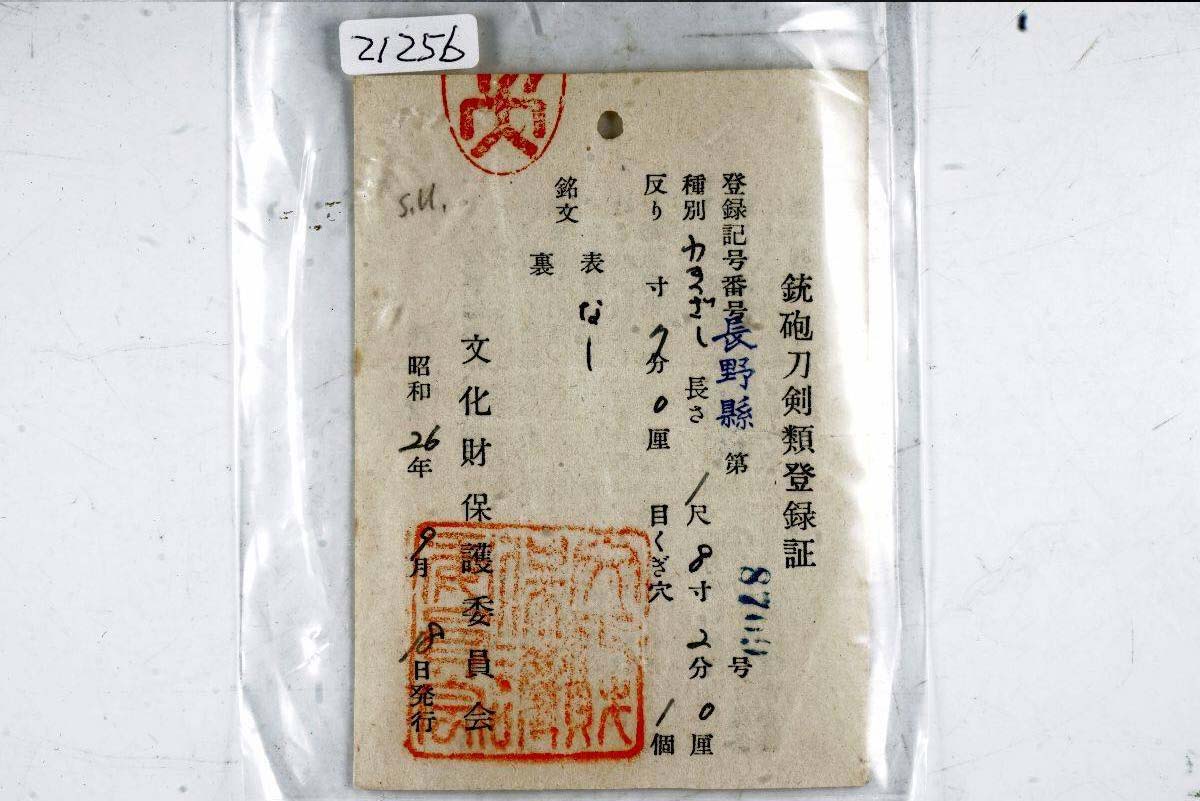 21256
銃砲刀剣類登録証
登録記号番号 長野縣 第 号
種別 わきざし 長さ 1尺 8寸 2分 0厘
反り 寸 7分 0厘 目くぎ穴 1個
銘文
表 なし
裏
文化財保護委員会
昭和 26年 9月 18日発行
S.U.